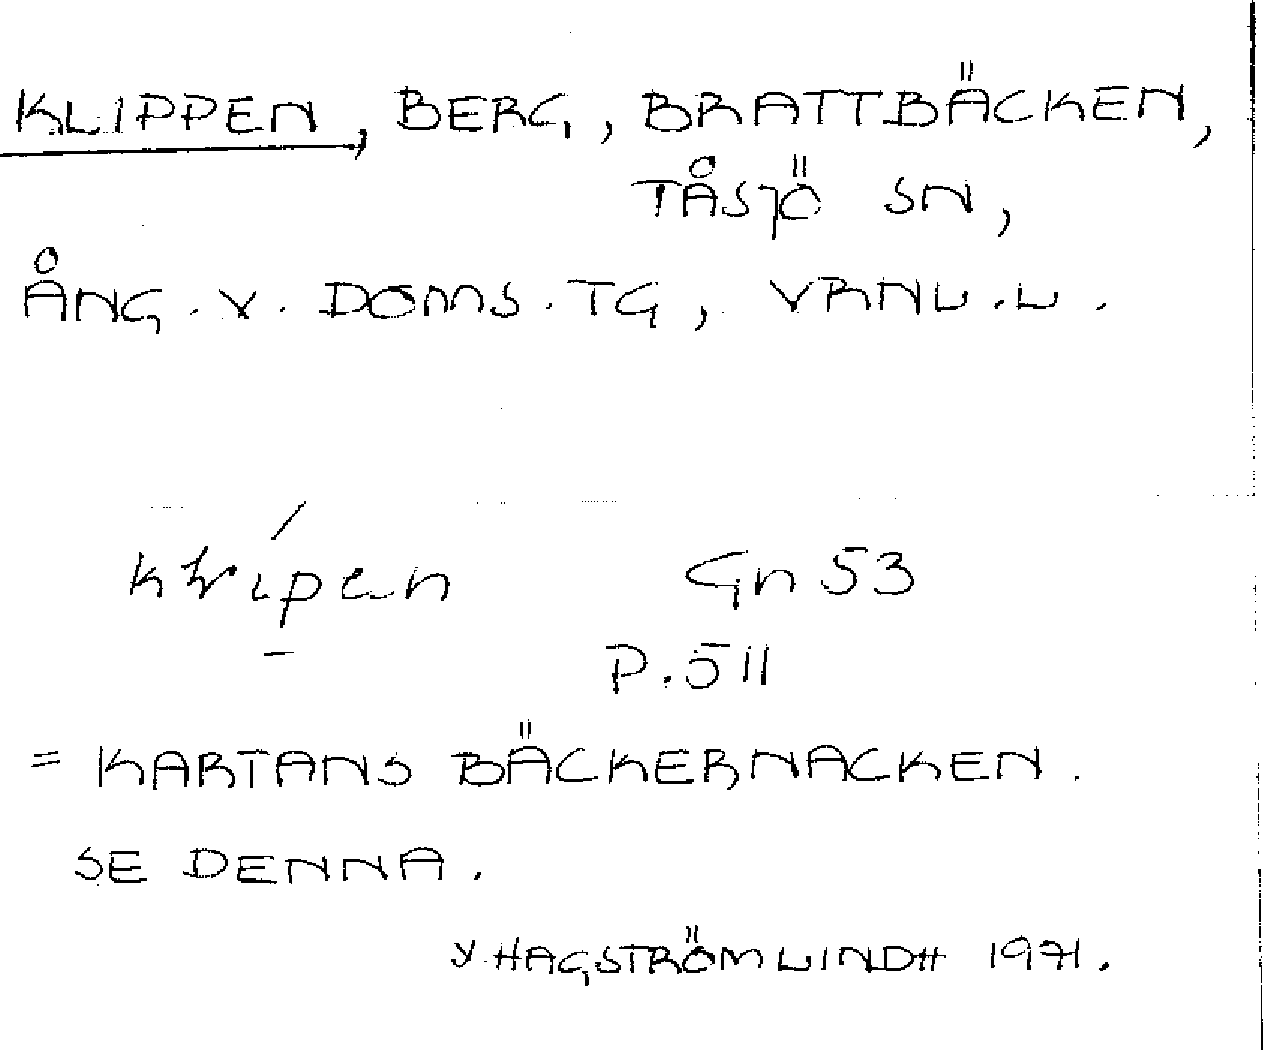 KLIPPEN, BERG, BRATTBÄCKEN,
TÅSJÖ SN,
ÅNG. V. DOMS. TG, VRNL. L.
Gn 53
P. 511
= KARTANS BÄCKERNACKEN.
SE DENNA.
Y. HAGSTRÖM LINDH 1971.